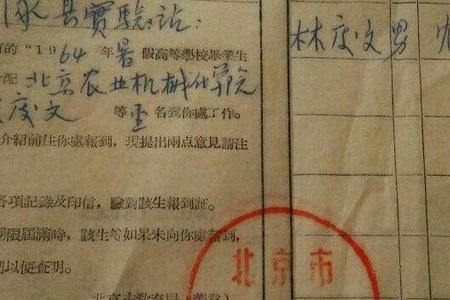 县實驗站：
林度文 男
的“1964年暑假高等學校畢業生
北京农业机械化学院
度文 等壹名到你處工作。
介紹前往你處報到，現提出兩點意見請注
各項記錄及印信，驗對該生報到証。
期限屆滿時，該生等如果未向你處報到，
以便查明。
北京市